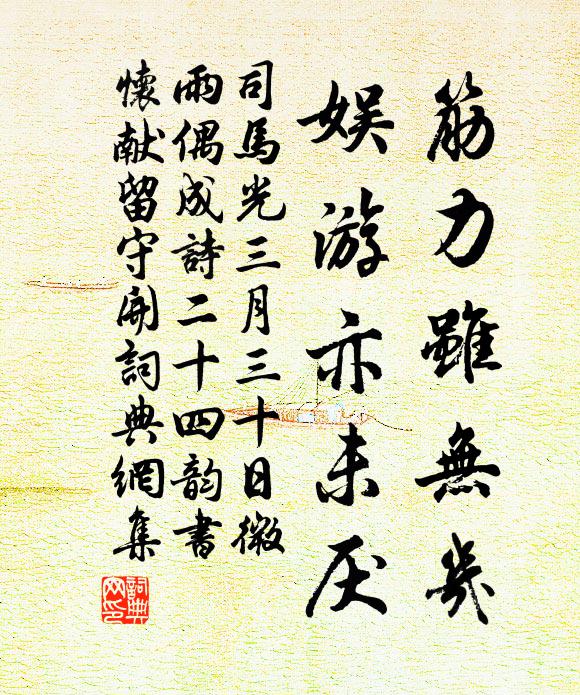 筋力雖無幾
娛游亦未厌
司馬光三月三十日微
雨偶成詩二十四韵書
懷献留守開詞典網集
詞典
网印